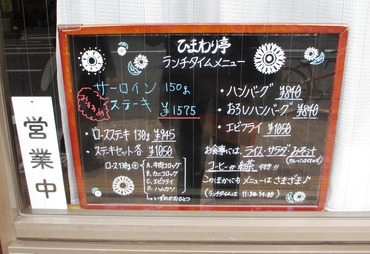 ひまわり亭
ランチタイムメニュー
おすすめ
サーロイン 150g
ステーキ ¥1575
・ロースステーキ 130g ¥945
・ステーキセット各 ¥1050
ロース130g+
A. 牛肉コロッケ
B. カニコロッケ
C. エビフライ
D. ハムカツ
いずれかおひとつ
・ハンバーグ ¥840
・おろしハンバーグ ¥840
・エビフライ ¥1050
お食事には、ライス・サラダ・みそ汁
コーヒーか紅茶付き!!
このほかにもメニューはさまざま♪
(ランチタイムは 11:30-14:00)
営業中